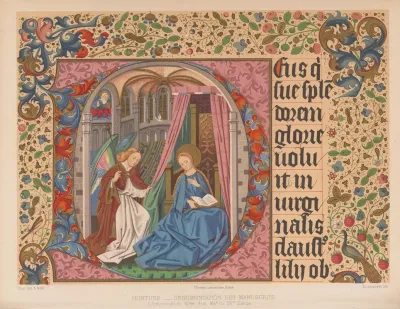 eus q̃
sue splē
dorem
glorie
uolu
it in
uirgi
nalis
claust
lilij ob
PEINTURE — ORNEMENTATION DES MANUSCRITS